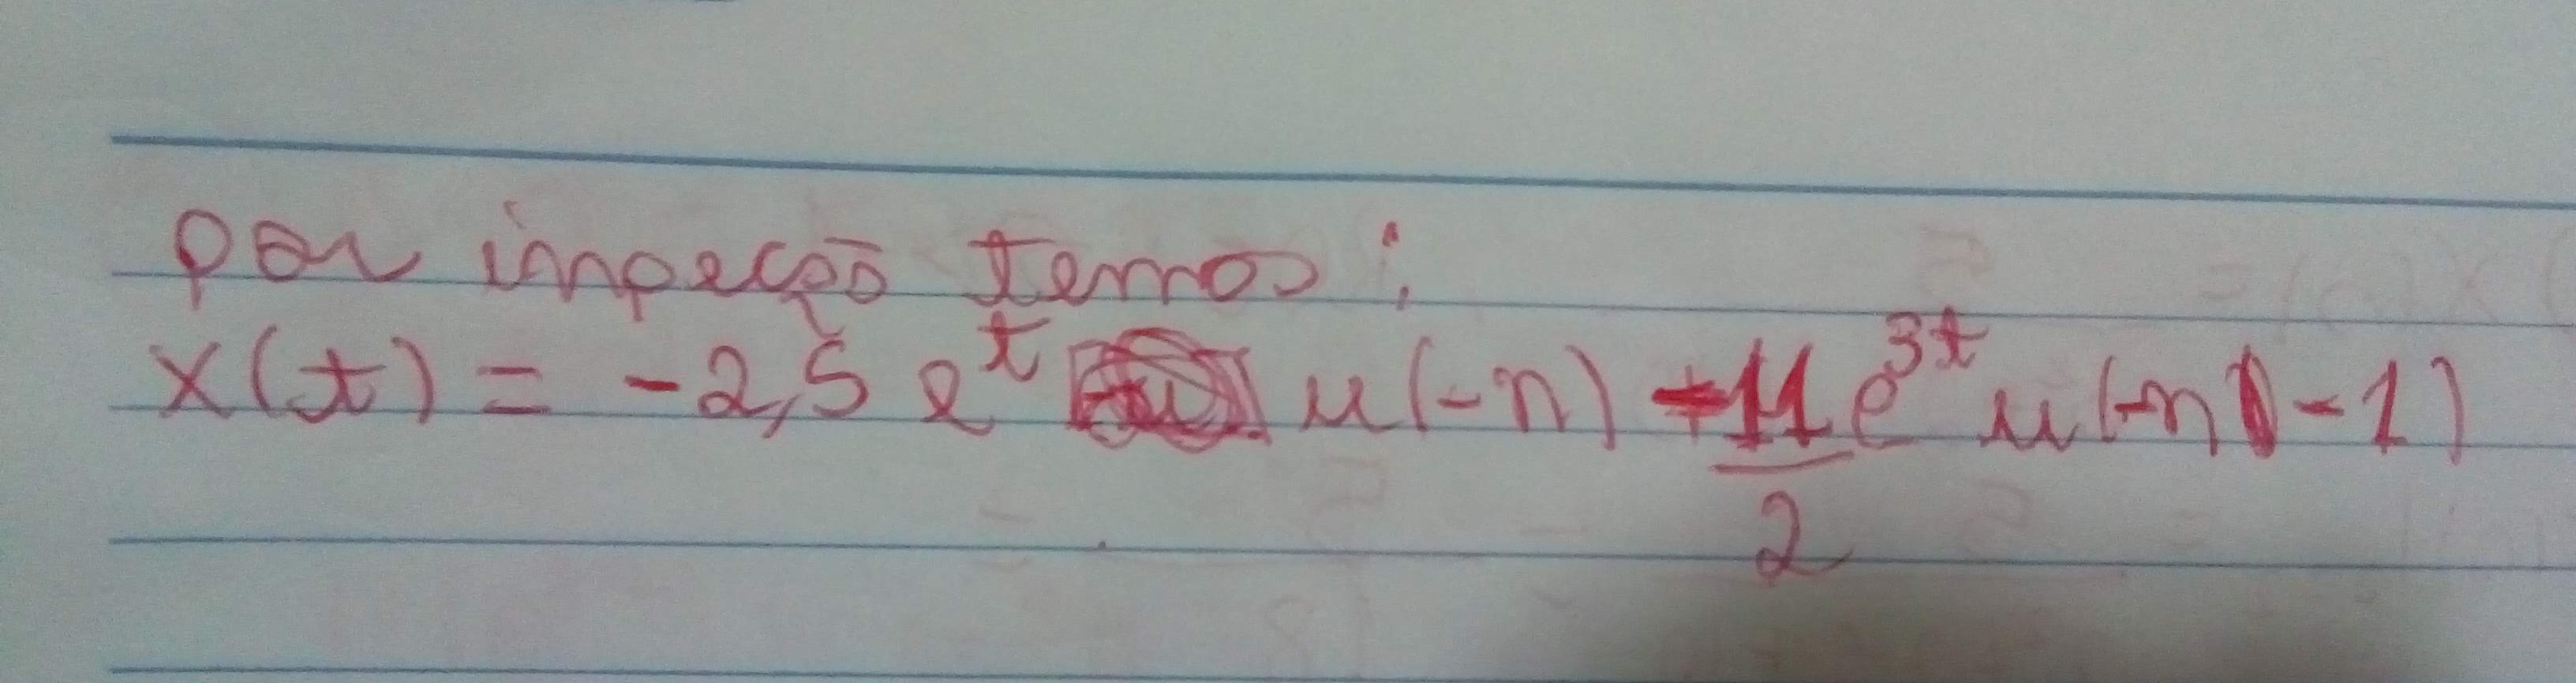 por inspeção temos:
x(t) = -2,5 e^t u(-n) - 11/2 e^3t u(-n - 1)